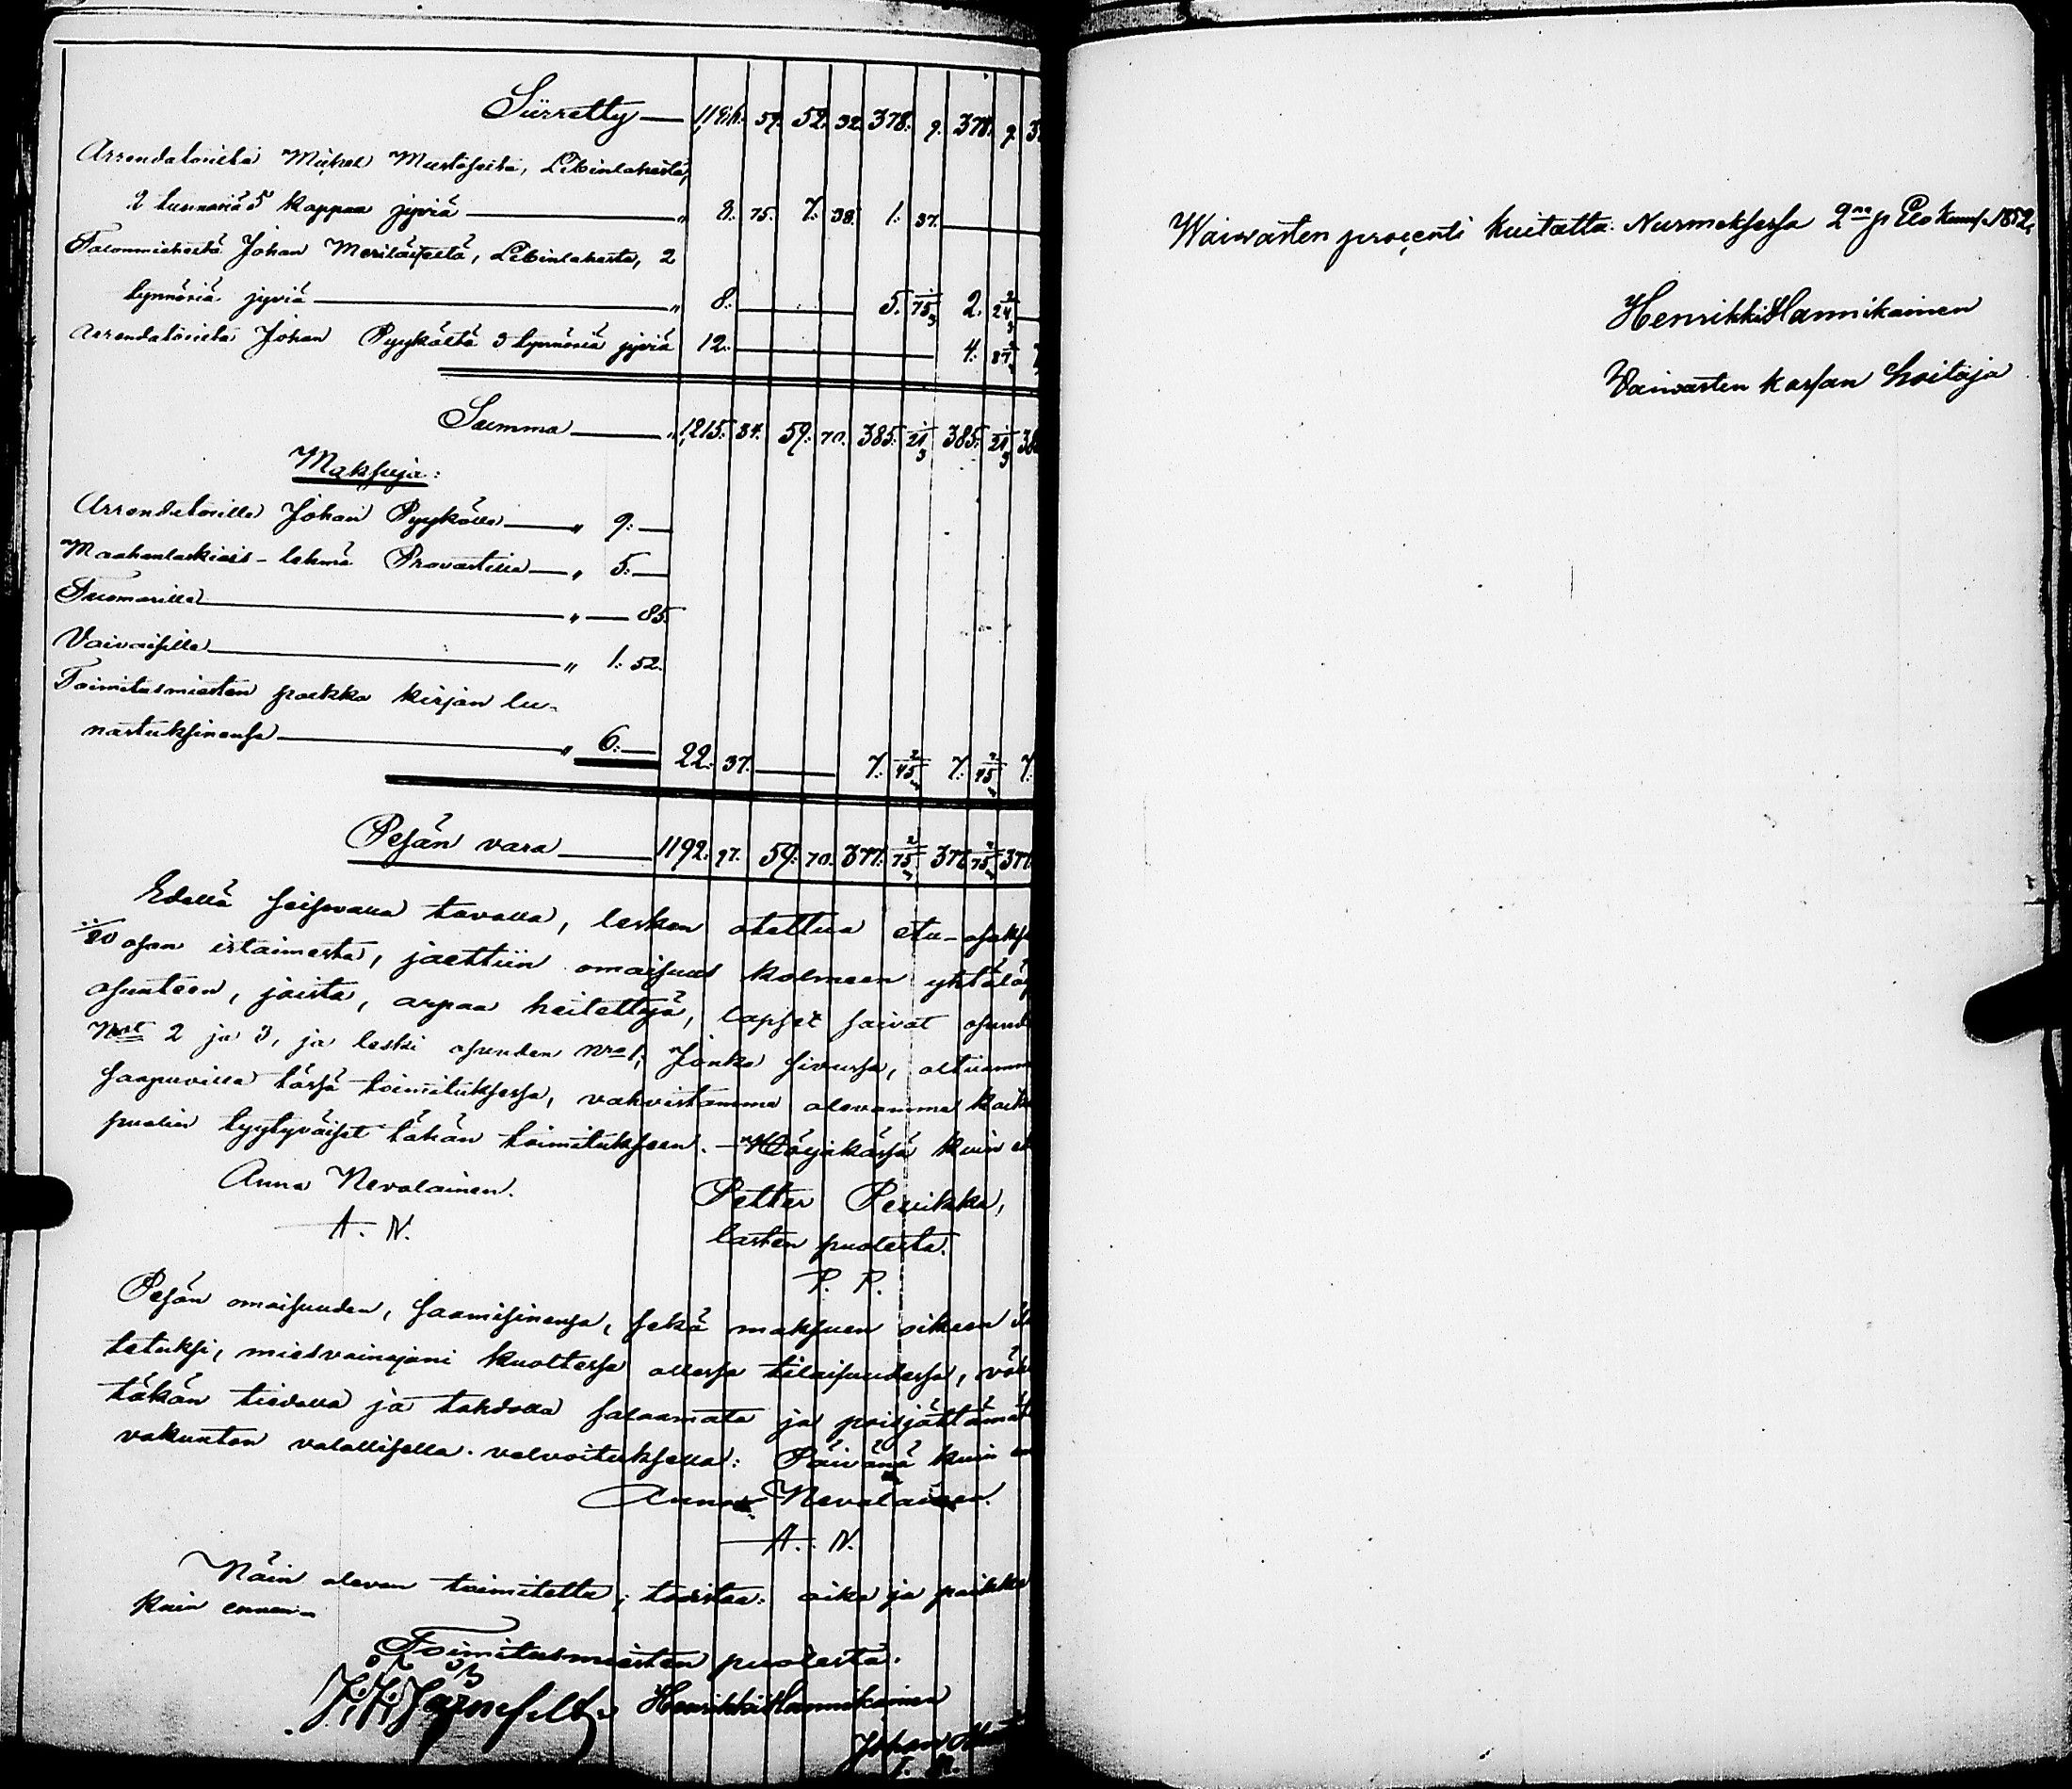 Siirretty — 1186. 59. 52. 32. 378. 9. 378. 9. 3
Arrendatorilta Michel Mustoselta, Libinlahesta,
2 tunnoriä 5 kappaa jyviä — „ 8. 75. 7. 38. 1. 37.
Talonmieheltä Johan Meriläiseltä, Libinlahesta, 2
tynnöriä jyviä — „ 8. — 5. 75 1/3 2. 24 2/3
Arrendatorilta Johan Pyykältä 3 tynnöriä jyviä 12. — 4. 87
Summa — „ 1215. 34. 59. 70. 385. 21 1/3 385. 21 1/3 38
Maksuja:
Arrendatorille Johan Pyykälle — „ 9: —
Maahanlaskiais-lehmä Provastille — „ 5: —
Tuomarille — „ — 85.
Vaivaisille — „ 1: 52.
Toimitusmiesten palkka kirjan lu-
nastuksinensa — „ 6: — 22. 37. — 7. 45 2/3 7. 45 2/3 7.
Pesän vara — 1192. 97. 59. 70. 377. 75 2/3 377. 75 2/3 377.
Edellä seisovalla tavalla, lesken otettua etu-osaks
1/20 osan irtaimesta, jaettiin omaisuus kolmeen yhtälä
osunteen, joista, arpaa heitettyä, lapset saivat osund
Nrot 2 ja 3, ja leski osunden Nro 1, Jonka sivussa, oltuamm
saapuvilla tässä toimituksessa, vahvistamme olevamme kaik
puolin tyytyväiset tähän toimitukseen. — Höljäkässä kuin e
Anna Nevalainen. Petter Peuikka,
A. N. lasten puolesta.
P. P.
Pesän omaisuuden, saamisinensa, sekä maksuen oikeen il
tetuksi, miesvainajani kuoltessa ollessa tilaisuudessa, väh
täkän tiedolla ja tahdolla salaamata ja poisjättämät
vakuutan valallisella velvoituksella: Päivänä kuin en
Anna Nevalainen.
A. N.
Näin olevan toimitettu; toistaa: aika ja paikka
kuin ennen.
Toimitusmiesten puolesta.
J. F. Järnefelt. Henrikki Hannikainen
Johan
Waiwasten procenti kuitattu. Nurmeksessa 2na p Elo kuusa 1852.
Henrikki Hannikainen
Vaiwasten kassan hoitaja